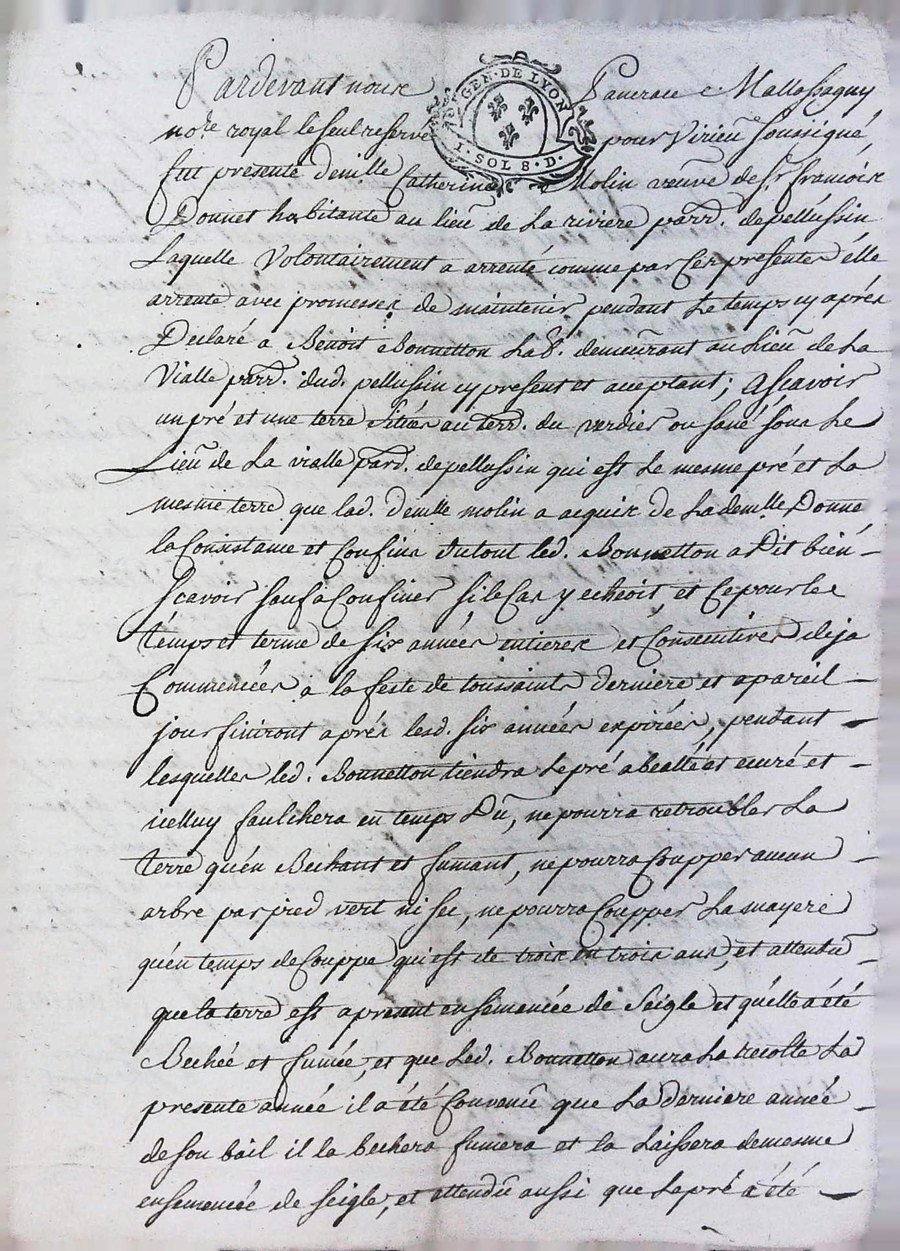 GEN·DE LYON
1·SOL 8·D·
Pardevant nous Mallossagny
no.re royal le seul reservé pour Virieu soussigné,
fut presente demlle Catherine Molin veuve de Sr. françois
Donnet habitante au lieu de La riviere parr. de pellussin
Laquelle Volontairement a arrenté comme par Ces presentes élle
arrente avec promesses de maintenir pendant Le temps cy aprés
Declaré a Benoit Bonnetton Lab. demeurant au Lieu de La
Vialle parr. dud. pellussin cy present et aceptant; Ascavoir
un pré et une terre sitües au terr. du verdier ou sané sous Le
Lieu de La vialle parr. de pellussin qui est Le mesme pré et La
mesme terre que lad. demlle molin a acquis de La demlle Donne
la Consistance et Confins du tout led. Bonnetton a Dit bien
Scavoir sauf a Confiner si le Cas y echeoit, et Ce pour Le
temps et terme de six années entieres et Consecutives deja
Commencées a la feste de toussaints derniere et a pareil
jour finiront aprés lesd. six années expirées, pendant
lesquelles led. Bonnetton tiendra Le pré abealté et curé et
icelluy faulchera en temps Dû, ne pourra retroubler La
terre qu'en Bechant et fumant, ne pourra Coupper aucun
arbre par pied vert ni sec, ne pourra Coupper La mayere
qu'en temps de Couppe qui est de trois en trois ans, et attendu
que la terre est a present ensemencée de Seigle et qu'elle a été
Bechée et fumée, et que Led. Bonnetton aura La recolte La
presente année il a été Convenû que La derniere année
de son bail il la bechera fumera et la Laissera de mesme
ensemencée de seigle, et attendû aussi que Le pré a été